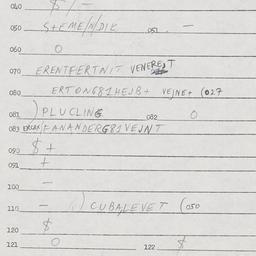 040 $ / —
050 S+EME/N/DIK 051 —
060 O
070 ERENTFERTNIT VENEREJT
080 ERTONG81HEJB+ VEJNE+ (027
081 ) PLUCLING 082 O
083 FANANDERG81VEJNT
090 $ +
091 +
100 —
110 — ) CUBALEVET (050
120 $
121 O 122 $